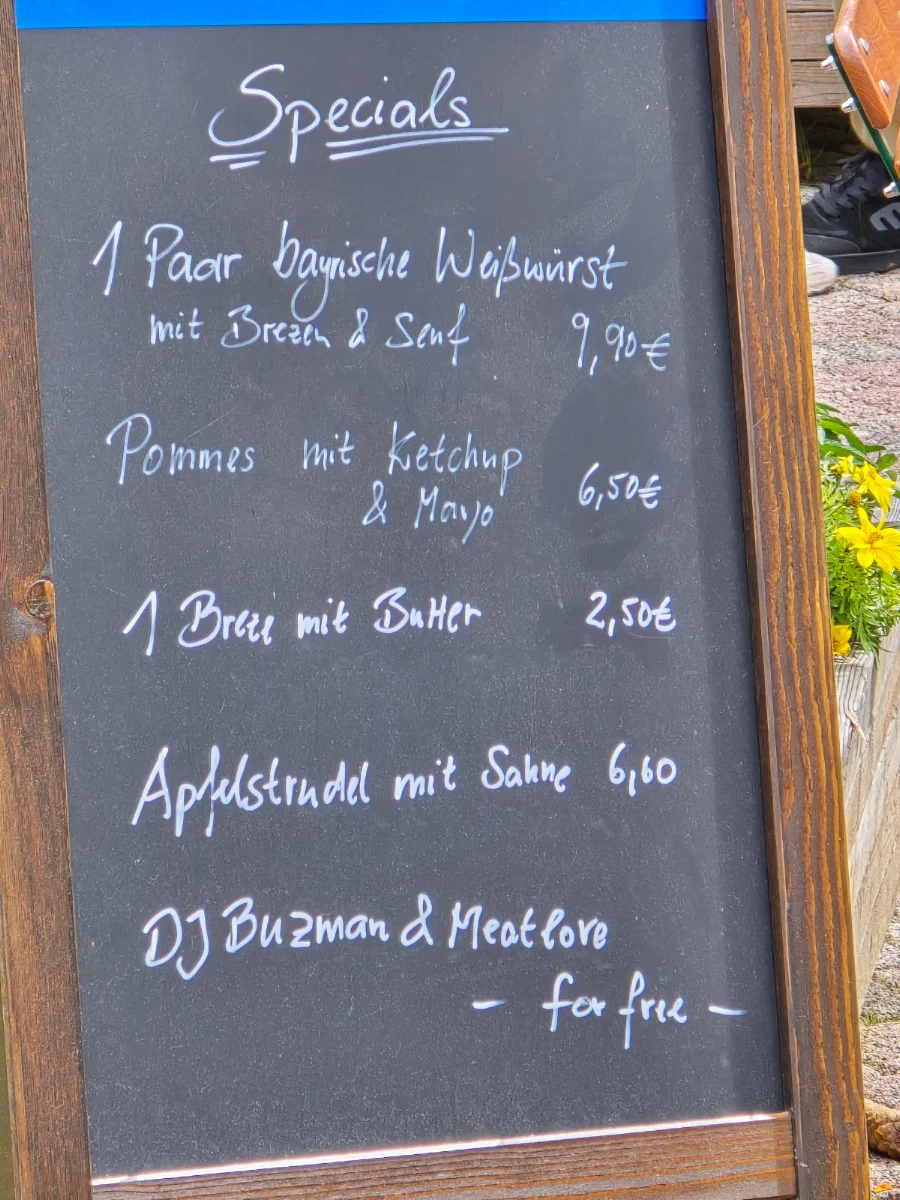 Specials
1 Paar bayrische Weißwürst
mit Brezen & Senf 9,90€
Pommes mit Ketchup
& Mayo 6,50€
1 Breze mit Butter 2,50€
Apfelstrudel mit Sahne 6,60
DJ Buzman & Meatlove
- for free -